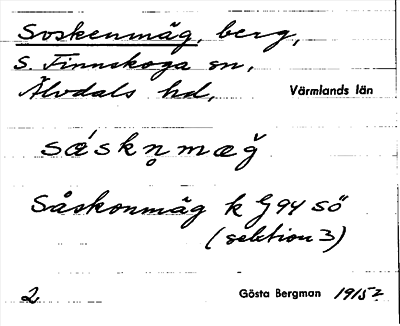 Soskenmäg, berg,
S. Finnskoga sn,
Älvdals hd, Värmlands län
sǽskn̥mæğ
Såskonmäg k G94 sö
(sektion 3)
2 Gösta Bergman 1915?